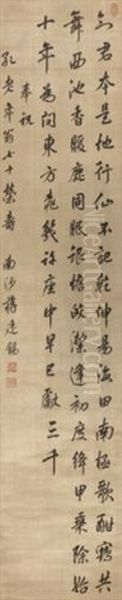 知君本是地行仙不記乾坤易海田南極歌酣鶴共
舞西池香暖鹿同眠銀蟾皎潔逢初度絳甲乘除始
十年為問東方幾許座中早已獻三千
奉祝
孔老年翁七十榮壽
南沙蔣廷錫